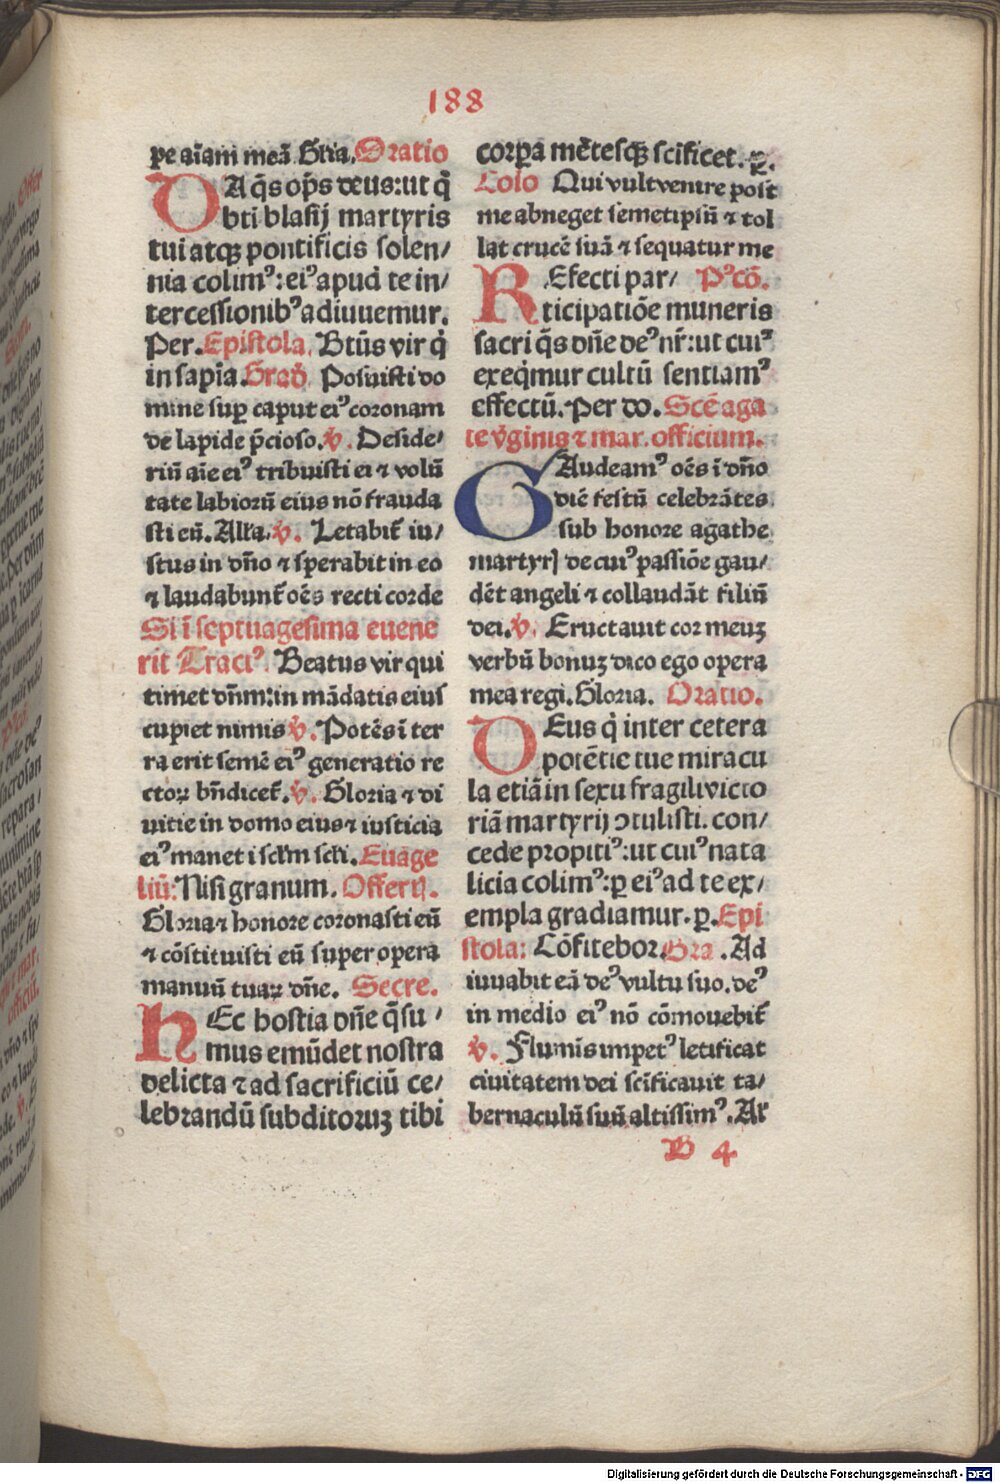 188
pe aīam meā. Gl'ia. Oratio
DA q̄s op̄s deus: ut q̄
bti blasij martyris
tui atqꝫ pontificis solen/
nia colimꝰ: eiꝰ apud te in/
tercessionibꝰ adiuuemur.
Per. Epistola. Btūs vir q̇
in sapīa. Grad̄. Posuisti do
mine suꝑ caput eiꝰ coronam
de lapide p̄cioso. v̄. Deside/
riū aīe eiꝰ tribuisti ei ⁊ volū
tate labiorū eius nō frauda
sti eū. All'a. v̄. Letabit̄ iu/
stus in dn̄o ⁊ sperabit in eo
⁊ laudabunt̄ oēs recti corde
Si ī septuagesima euene
rit Tractꝰ. Beatus vir qui
timet dn̄m: in mādatis eius
cupiet nimis v̄. Potēs ī ter
ra erit semē eiꝰ generatio re
ctoꝝ bn̄dicet̄. v̄. Gloria ⁊ di
uitie in domo eius ⁊ iusticia
eiꝰ manet ī scl'm scl'i. Euāge
liū: Nisi granum. Offertꝭ.
Gloria ⁊ honore coronasti eū
⁊ cōstituisti eū super opera
manuū tuaꝝ dn̄e. Secre.
HEc hostia dn̄e q̄su/
mus emūdet nostra
delicta ⁊ ad sacrificiū ce/
lebrandū subditoruꝫ tibi
corꝑa mētesqꝫ scificet. ꝑ.
Cōio Qui vult venire post
me abneget semetipsū ⁊ tol
lat crucē suā ⁊ sequatur me
REfecti par/ Pꝰcō.
ticipatiōe muneris
sacri q̄s dn̄e deꝰ nr̄: ut cuiꝰ
exeq̇mur cultū sentiamꝰ
effectū. Per do. Scē aga
te v̄ginis ⁊ mar. officium.
GAudeamꝰ oēs ī dn̄o
diē festū celebrātes
sub honore agathe
martyrꝭ de cuiꝰ passiōe gau/
dēt angeli ⁊ collaudāt filiū
dei. v̄. Eructauit cor meuꝫ
verbū bonuꝫ dico ego opera
mea regi. Gloria. Oratio.
DEus q̇ inter cetera
potētie tue miracu
la etiā in sexu fragili victo
riā martyrij ꝯtulisti. con/
cede propitiꝰ: ut cuiꝰ nata
licia colimꝰ: ꝑ eiꝰ ad te ex/
empla gradiamur. ꝑ. Epi
stola: Cōfitebor. Gra. Ad
iuuabit eā deꝰ vultu suo. deꝰ
in medio eiꝰ nō cōmouebit̄
v̄. Flumīs impetꝰ letificat
ciuitatem dei scīficauit ta/
bernaculū suū altissimꝰ. Al'
B 4
Digitalisierung gefördert durch die Deutsche Forschungsgemeinschaft - DFG